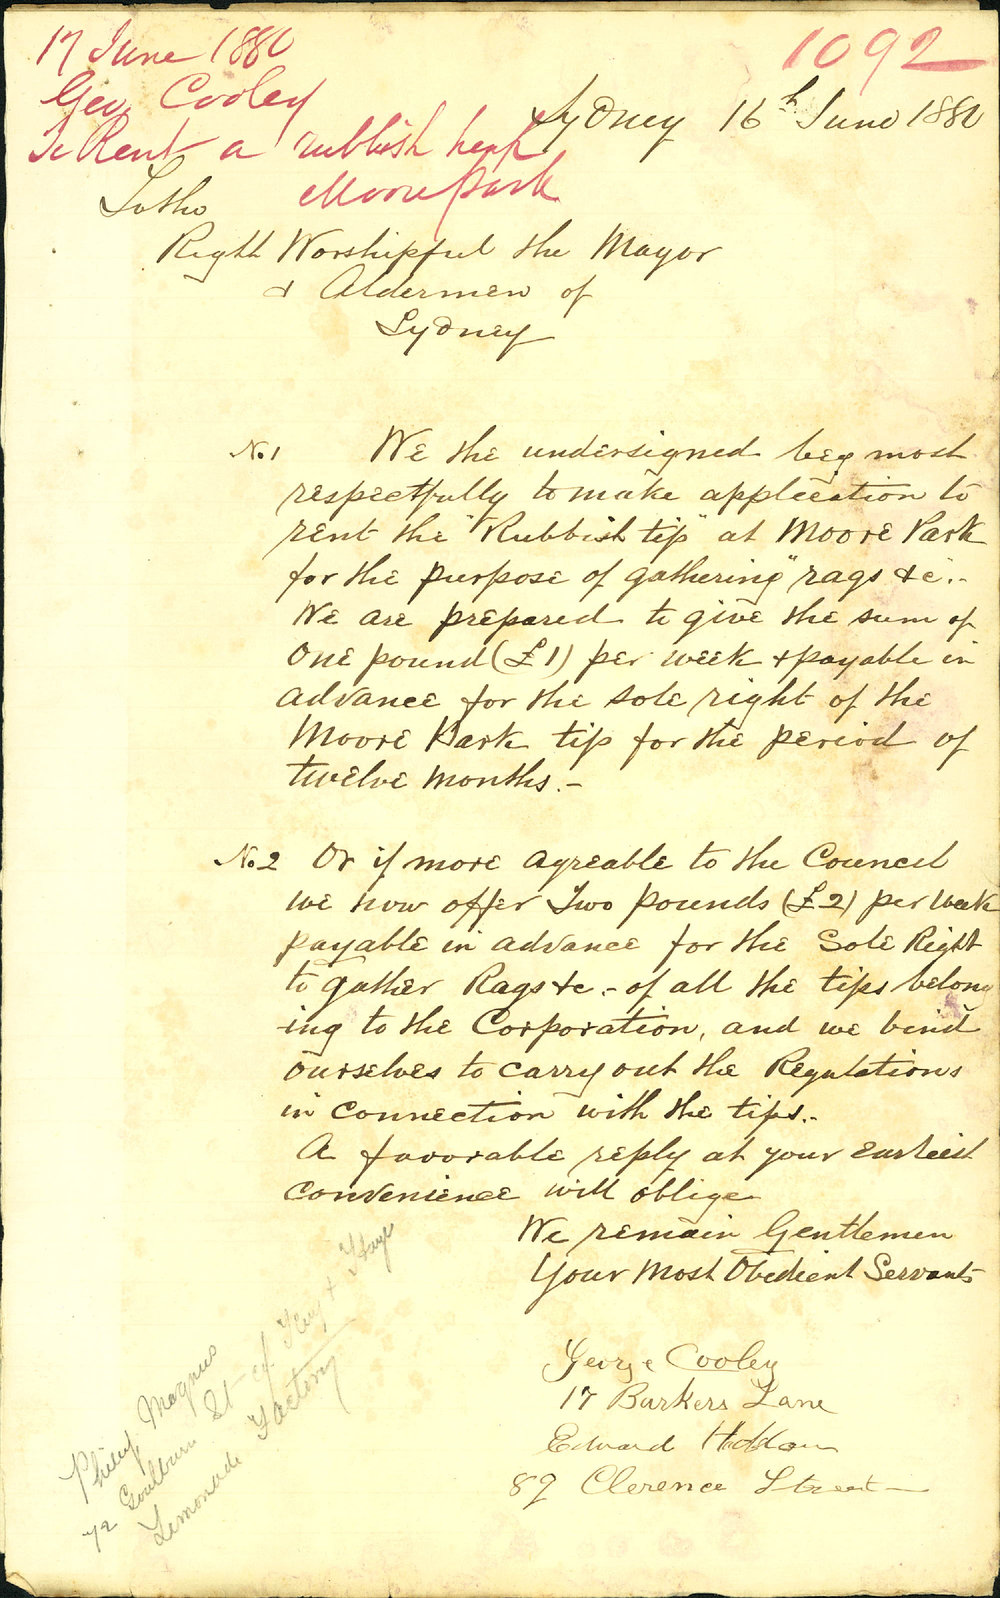 17 June 1880
1092
Geo. Cooley
To Rent a rubbish heap
Moore Park
Sydney 16th June 1880
To the
Right Worshipful the Mayor
& Aldermen of
Sydney
No. 1 We the undersigned beg most
respectfully to make application to
rent the "Rubbish tip" at Moore Park
for the purpose of gathering "rags &c.-
We are prepared to give the sum of
One pound (£1) per week & payable in
advance for the sole right of the
Moore Park tip for the period of
twelve months.-
No. 2 Or if more agreable to the Council
we now offer Two pounds (£2) per week
payable in advance for the Sole Right
to gather Rags &c.- of all the tips belong
-ing to the Corporation, and we bind
ourselves to carry out the Regulations
in connection with the tips.-
A favorable reply at your earliest
convenience will oblige
We remain Gentlemen
Your Most Obedient Servants
George Cooley
17 Barkers Lane
Edward
89 Clerence Street
Magnus
72 Goulburn St
Lemonade Factory